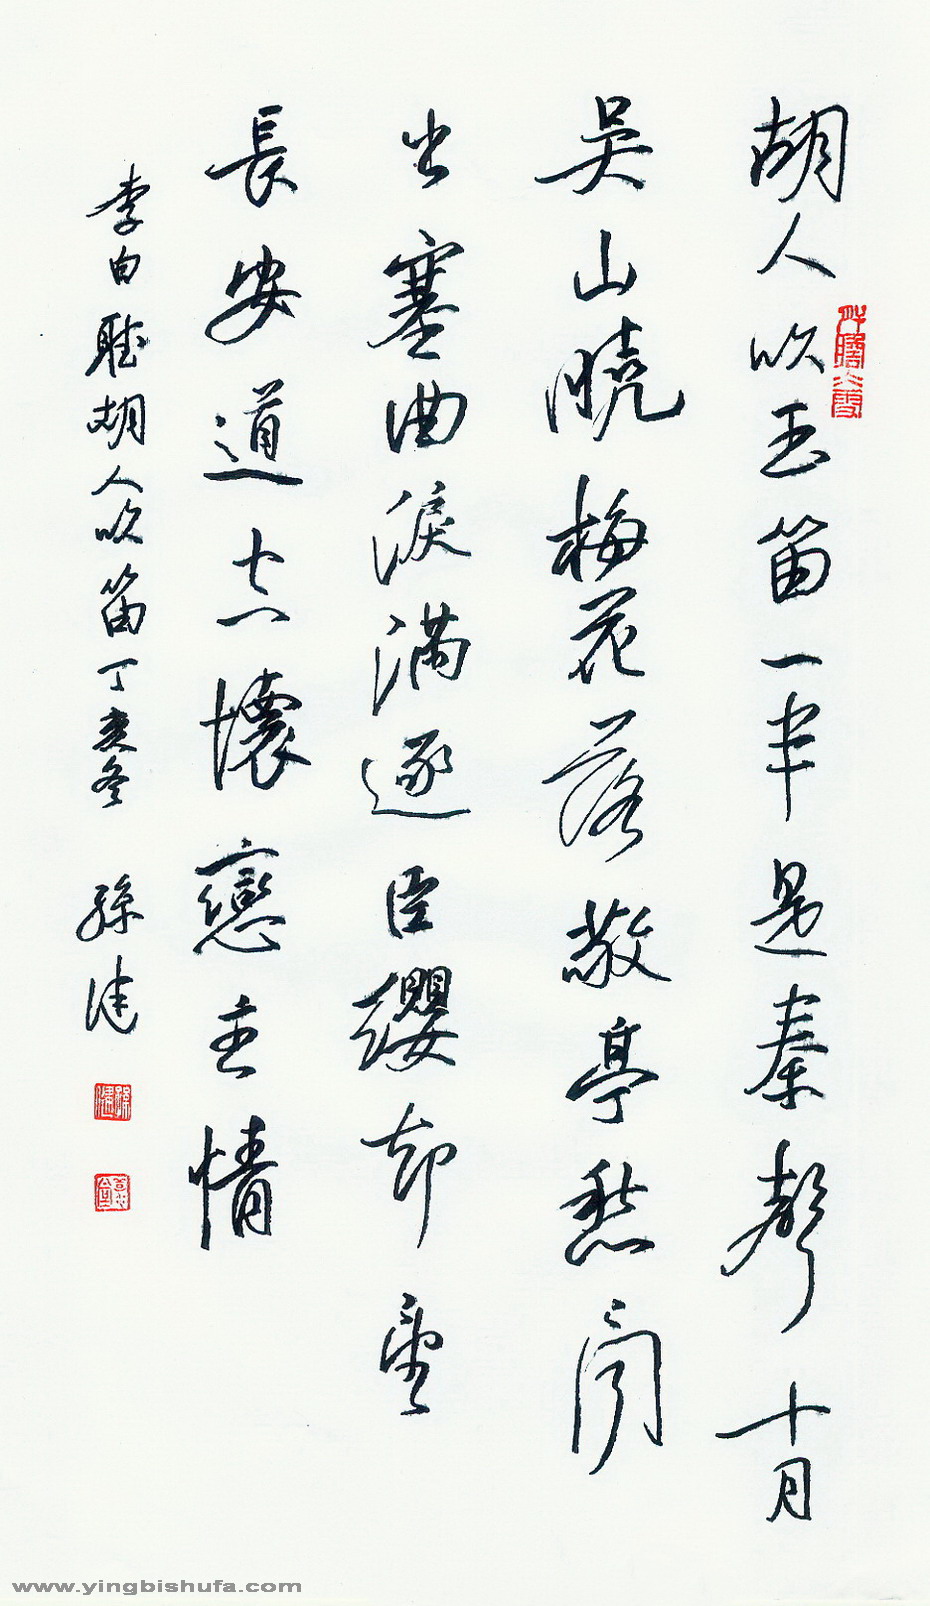 胡人吹玉笛一半是秦聲十月
吳山曉梅花落敬亭愁聞
出塞曲淚滿逐臣纓却望
長安道空懷戀主情
李白聽胡人吹笛丁亥冬 孫健
www.yingbishufa.com